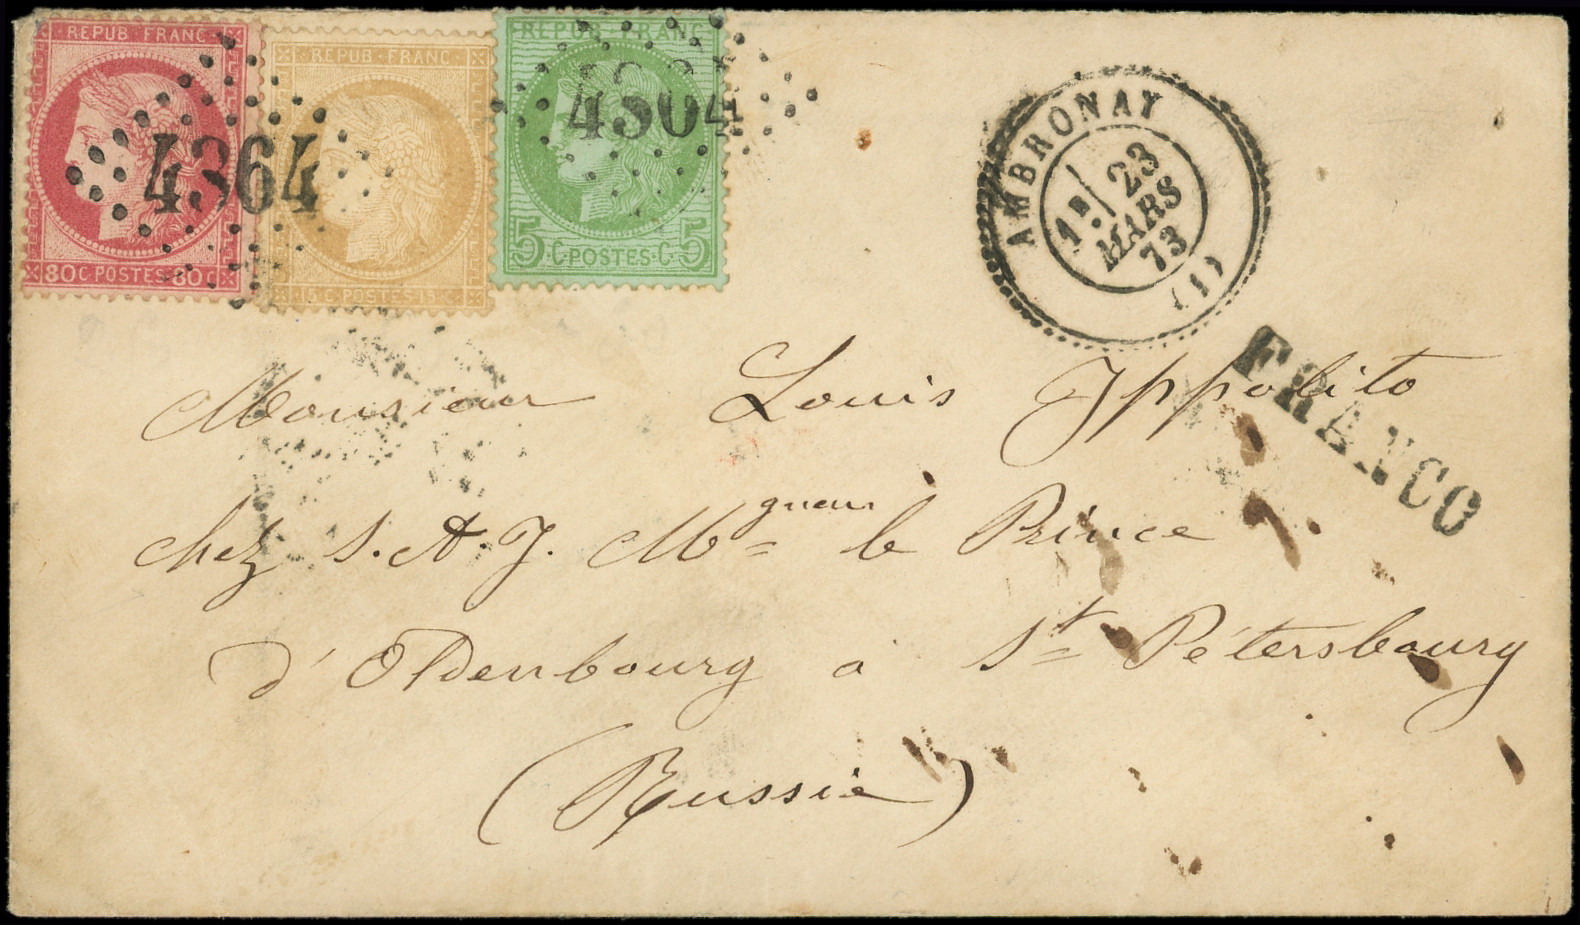 REPUB FRANC
80C POSTES 80C
REPUB·FRANC
15 C·POSTES·15 C
REPUB·FRANC
5·C·POSTES·C·5
4364
4364
AMBRONAY
1E
23
MARS
73
(1)
FRANCO
Monsieur Louis Ippolito
chez S. A. J. Mgneur le Prince
d'Oldenbourg à St Pétersbourg
(Russie)